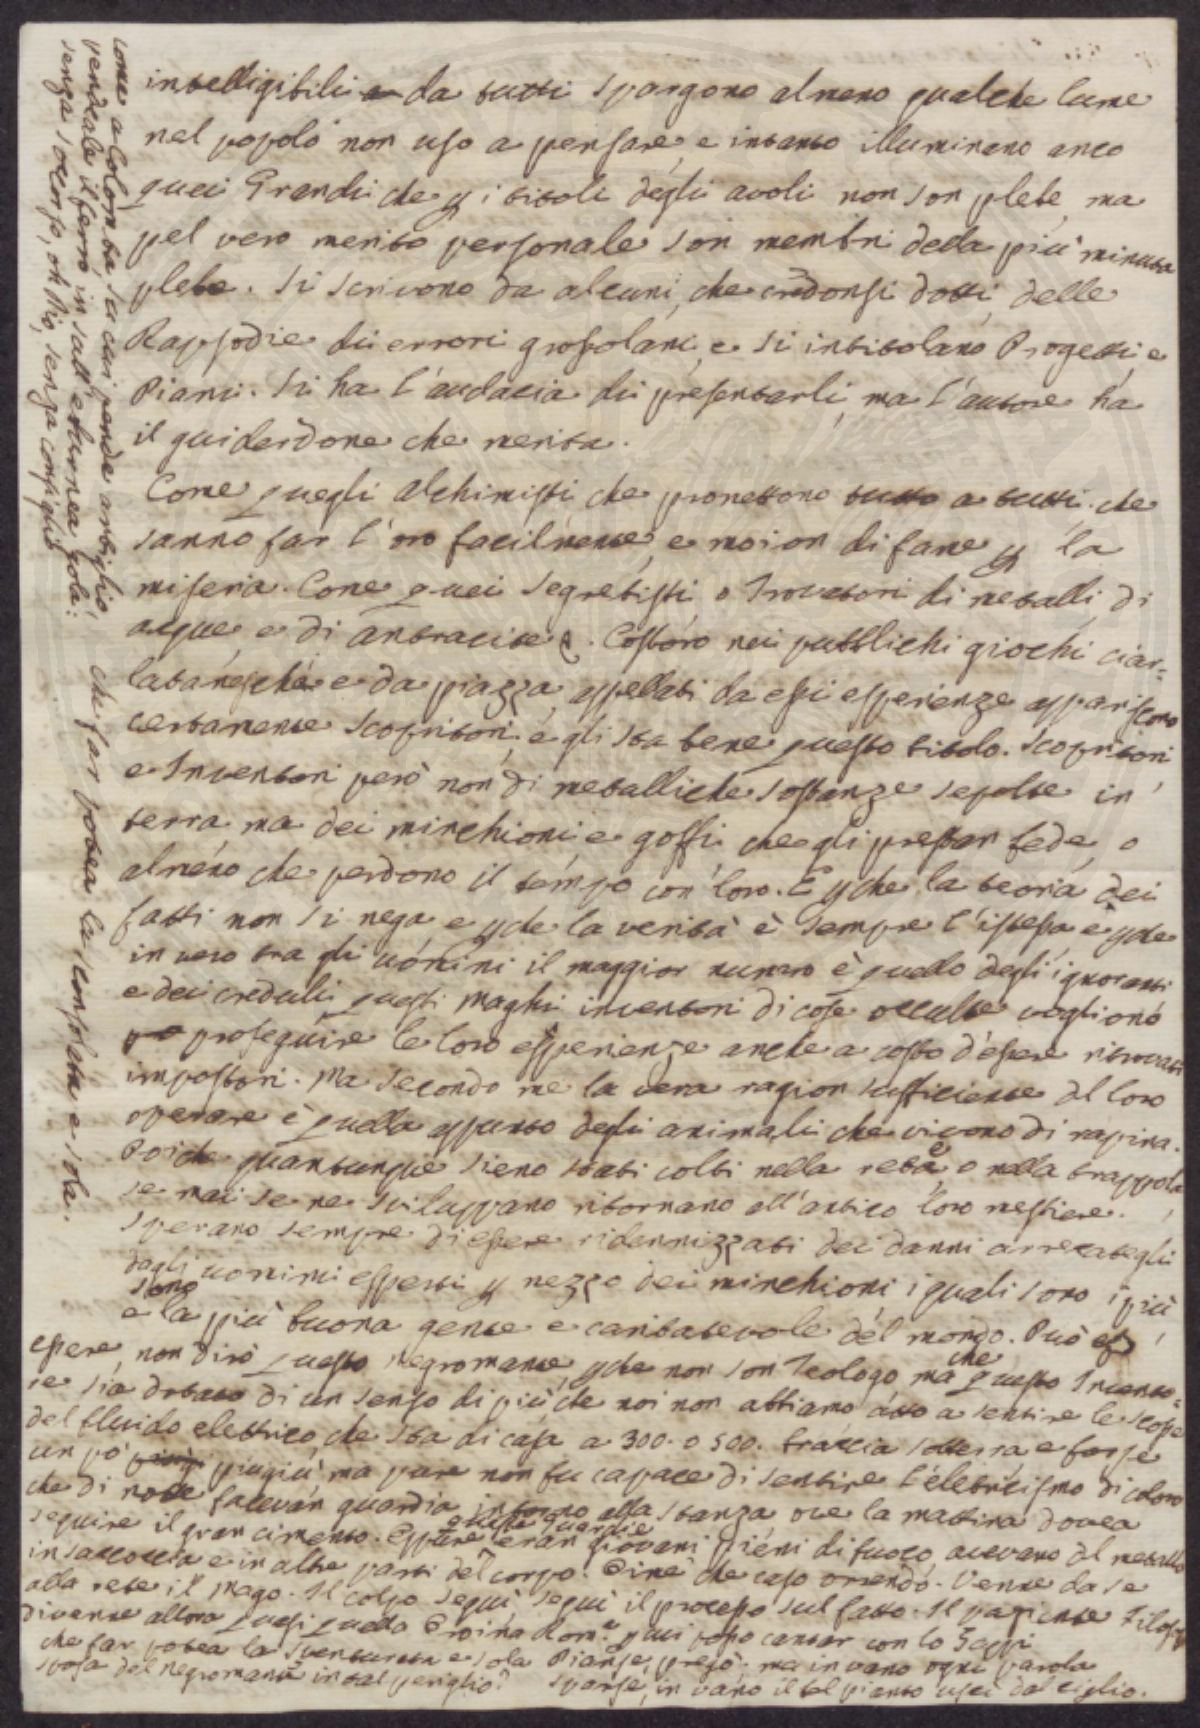 intelligibili da tutti spargono almeno qualche lume
nel popolo non uso a pensare, e intanto illuminano anco
quei Grandi che p i titoli degli avoli non son plebe, ma
pel vero merito personale son membri della più minuta
plebe. Si scrivono da alcuni, che credonsi dotti, delle
Rapsodie di errori grossolani, e si intitolano Progetti, e
Piani. Si ha l'audacia di presentarli, ma l'autore ha
il guiderdone che merita.
Come quegli Alchimisti che promettono tutto a tutti, che
sanno far l'oro facilmente, e moion di fame p la
miseria. Come quei segretisti o Trovatori di metalli, di
acque, e di antracite &. Costoro nei pubblichi giochi ciar=
lataneschi e da piazza, appellati da essi esperienze appariscono
certamente scopritori, e gli sta bene questo titolo. Scopritori
e Inventori però non di metalliche sostanze sepolte in
terra ma dei minchioni e goffi che gli prestan fede, o
almeno che perdono il tempo con loro. E pche la teoria dei
fatti non si nega e pche la verità è sempre l'istessa e pche
in vero tra gli uomini il maggior numero è quello degli ignoranti
e dei creduli questi Maghi inventori di cose occulte vogliono
proseguire le loro esperienze anche a costo d'essere ritrovati
impostori. Ma secondo me la vera ragion sufficiente al loro
operare è quella appunto degli animali che vivono di rapina.
Poiche quantunque sieno stati colti nella rete, o nella trappola,
se mai se ne sviluppano ritornano all'antico loro mestiere.
Sperano sempre di essere ridennizzati dei danni arrecatigli
dagli uomini esperti p mezzo dei minchioni i quali sono i più
sono
e la più buona gente e caritatevole del mondo. Può
essere, non dirò questo Negromante, pche non son Teologo ma che questo Invento=
re sia dotato di un senso di più che noi non abbiamo atto a sentire le scosse
del fluido elettrico, che sta di casa a 300. o 500. braccia sotterra e forse
un po' piugiù, ma pure non fu capace di sentire l'elettricismo di coloro
che di notte facevan guardia intorno alla stanza ove la mattina dovea
seguire il gran cimento. Eppure queste guardie eran giovani pieni di fuoco, avevano del metallo
in saccoccia e in altre parti del corpo. Oimè che caso orrendo. Venne da se
alla rete il Mago. Il colpo seguì seguì il processo sul fatto. Il paziente Filosofo
divenne allora quasi quella Eroina p cui posso cantar con lo Zappi
che far potea la sventurata e sola Pianse, pregò; ma in vano ogni parola
sposa del negromante in tal periglio? Sparse, in vano il bel pianto uscì dal ciglio.
che far potea la sconsolata e sola.
come a Colomba su cui penda artiglio,
pendeale il ferro in sull'eburnea gola:
senza soccorso, oh Dio, senza consiglio